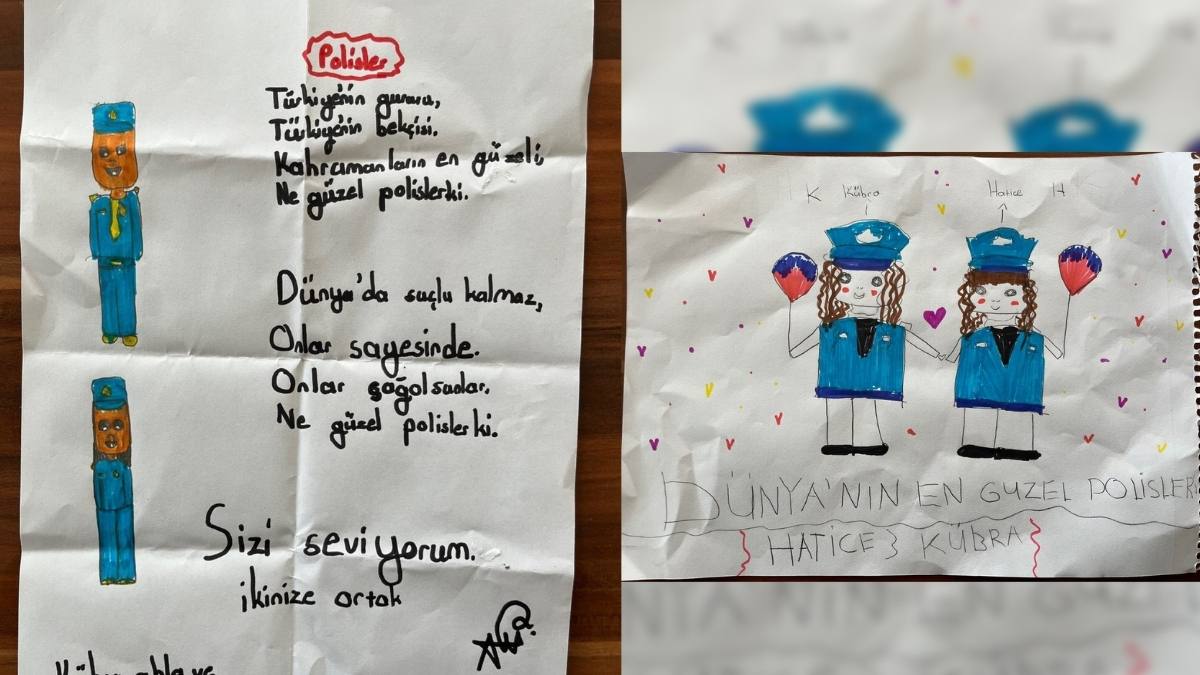 Polisler
Türkiye'nin gururu,
Türkiye'nin bekçisi.
Kahramanların en güzeli,
Ne güzel polislerki.
Dünya'da suçlu kalmaz,
Onlar sayesinde.
Onlar sağolsunlar.
Ne güzel polislerki.
Sizi seviyorum.
ikinize ortak
Kübra abla ve
K Kübra
Hatice H
DÜNYA'NIN EN GUZEL POLİSLER
HATİCE KÜBRA